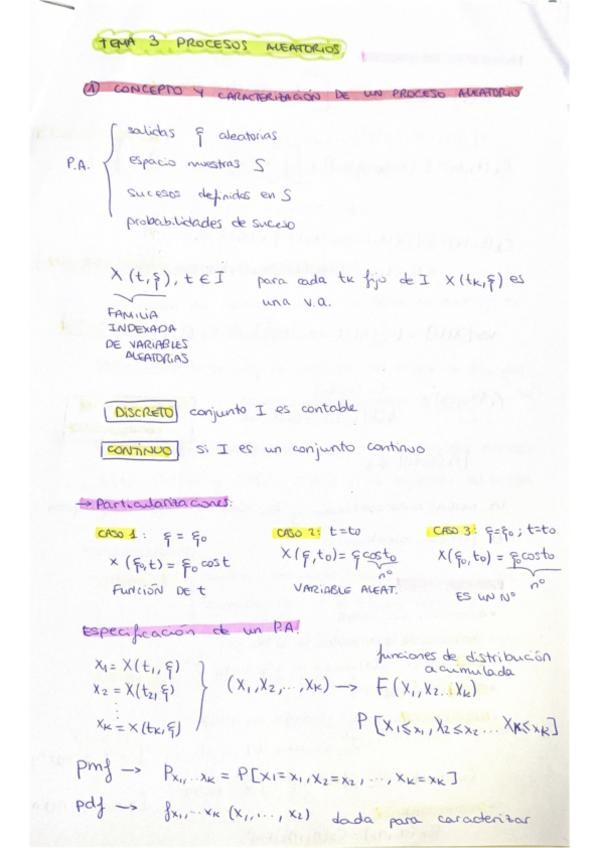 TEMA 3 PROCESOS ALEATORIOS
① CONCEPTO Y CARACTERIZACIÓN DE UN PROCESO ALEATORIO
P.A. { salidas ξ aleatorias
espacio muestras S
sucesos definidos en S
probabilidades de suceso
X(t,ξ), t ∈ I para cada tk fijo de I X(tk,ξ) es
una v.a.
FAMILIA
INDEXADA
DE VARIABLES
ALEATORIAS
DISCRETO conjunto I es contable
CONTINUO si I es un conjunto continuo
→ Particularizaciones:
CASO 1: ξ = ξ0
X(ξ0,t) = ξ0 cost
FUNCIÓN DE t
CASO 2: t=t0
X(ξ,t0) = ξ cost0
nº
VARIABLE ALEAT.
CASO 3: ξ=ξ0; t=t0
X(ξ0,t0) = ξ0 cost0
nº
ES UN Nº
Especificación de un P.A:
X1 = X(t1,ξ)
X2 = X(t2,ξ)
⋮
XK = X(tK,ξ)
} (X1,X2,..,XK) → F(X1,X2...XK)
funciones de distribución
acumulada
P[X1≤x1, X2≤x2 ... XK≤xK]
pmf → Px1,..xK = P[X1=x1, X2=x2, ..., XK=xK]
pdf → fx1,..xK (x1,..., x2) dada para caracterizar